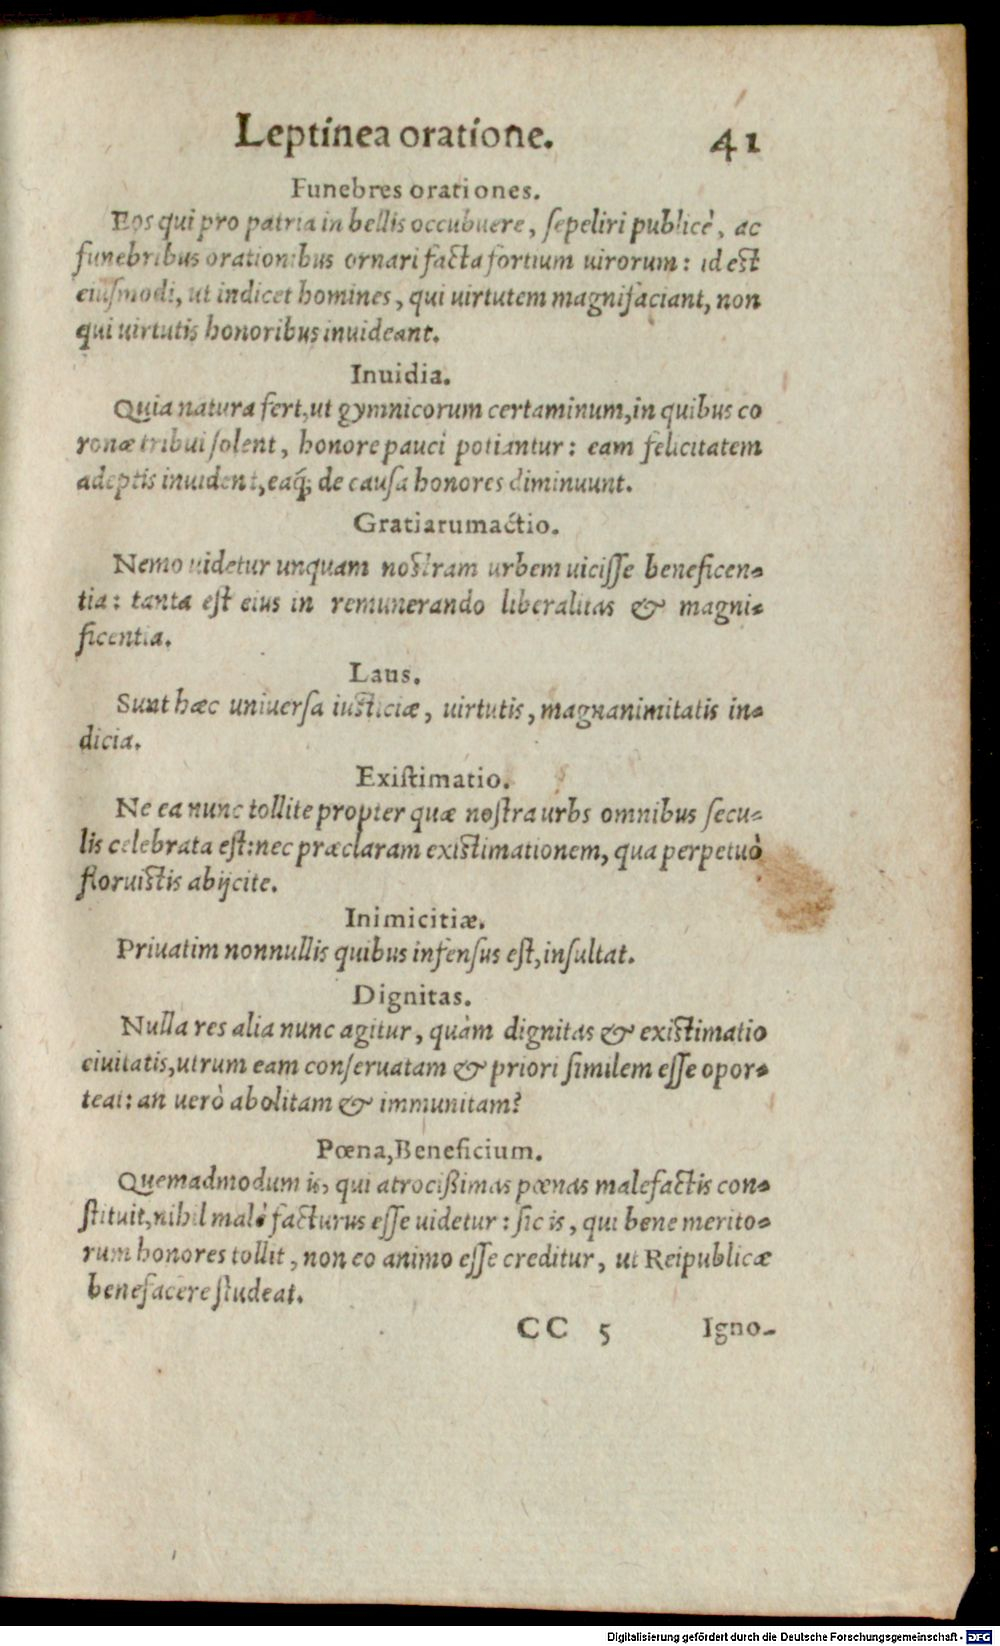 Leptinea oratione. 41
Funebres orationes.
Eos qui pro patria in bellis occubuere, sepeliri publicè, ac
funebribus orationibus ornari facta fortium uirorum: id est
eiusmodi, ut indicet homines, qui uirtutem magnifaciant, non
qui uirtutis honoribus inuideant.
Inuidia.
Quia natura fert, ut gymnicorum certaminum, in quibus co
ronæ tribui solent, honore pauci potiantur: eam felicitatem
adeptis inuident, eaq́; de causa honores diminuunt.
Gratiarum actio.
Nemo uidetur unquam nostram urbem uicisse beneficen-
tia: tanta est eius in remunerando liberalitas & magni-
ficentia.
Laus.
Sunt hæc uniuersa iusticiæ, uirtutis, magnanimitatis in-
dicia.
Existimatio.
Ne ea nunc tollite propter quæ nostra urbs omnibus secu-
lis celebrata est: nec præclaram existimationem, qua perpetuò
floruistis abijcite.
Inimicitiæ.
Priuatim nonnullis quibus infensus est, insultat.
Dignitas.
Nulla res alia nunc agitur, quàm dignitas & existimatio
ciuitatis, utrum eam conseruatam & priori similem esse opor-
teat: an uerò abolitam & immunitam?
Pœna, Beneficium.
Quemadmodum is, qui atrocißimas pœnas malefactis con-
stituit, nihil malè facturus esse uidetur: sic is, qui bene merito-
rum honores tollit, non eo animo esse creditur, ut Reipublicæ
benefacere studeat.
CC 5 Igno-
Digitalisierung gefördert durch die Deutsche Forschungsgemeinschaft - DFG